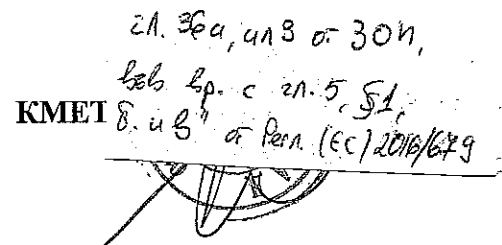 гл. 36а, ал 3 от ЗОП,
във вр. с гл. 5, §1,
КМЕТ
б. "в" от Регл. (ЕС) 2016/679